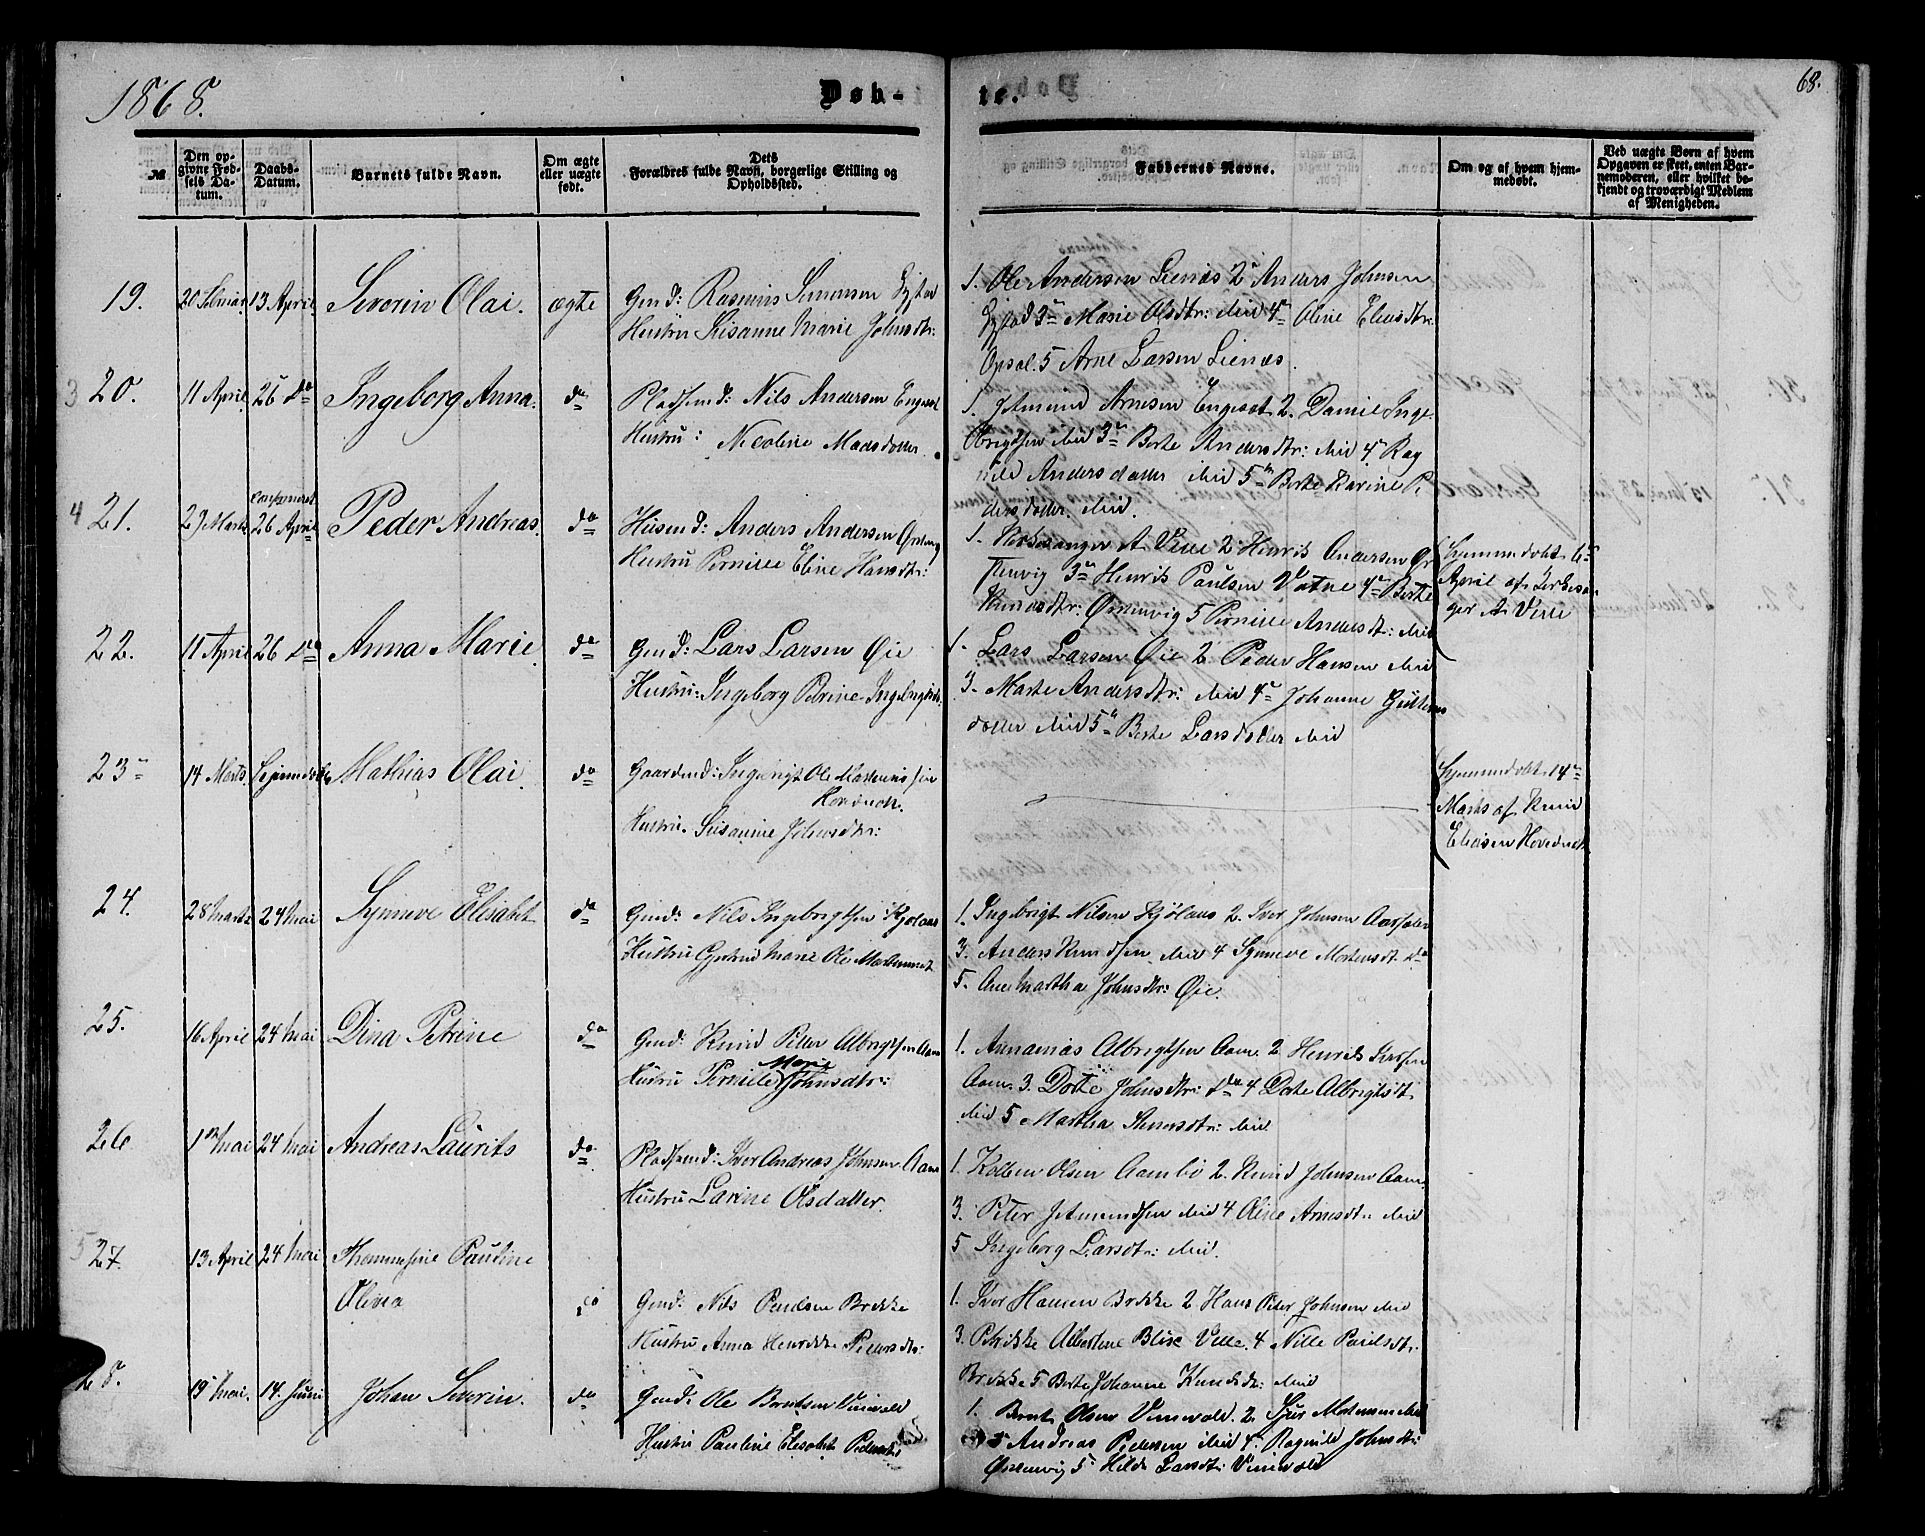 1868.
Døb-
te.
68.
№
Den op-
givne Fød-
sels Da-
tum.
Daabs-
Datum.
Barnets fulde Navn.
Om ægte
eller uægte
født.
Dets
Forældres fulde Navn, borgerlige Stilling og
Opholdssted.
Faddernes Navne.
Om og af hvem hjem-
medøbt.
Ved uægte Børn af hvem
Opgaven er skeet, enten Bar-
nemoderen, eller hvilket be-
kjendt og troværdigt Medlem
af Menigheden.
19. 13 April Severin Olai. ægte
Gmd: Rasmus Simensen
Hustru Susanne Marie Johnsdtr:
1. Ole Andersen Lienæs 2 Anders Johnsen
3 Marie Olsdtr: ibid 4 Oline Eliasdtr
Opsal. 5 Arne Larsen Lienæs.
3 20. 11 April 26 do Ingeborg Anna. do
Pladsmd: Nils Andersen Engeset
Hustru: Nicoline Madsdotter.
1. Amund Arnesen Engeset 2. Daniel Inge
brigtsen ibid 3 Berte Andersdtr: ibid 4 Rag
nild Andersdatter ibid 5 Berte Karine Pe
dersdotter ibid.
4 21. 29 Marts 26 April Peder Andreas. do
Husmd: Anders Andersen
Hustru Pernille Eline Hansdtr:
1. Kirkesanger A. Velle 2 Henrik Andersen Ør
stenvig 3 Henrik Paulsen Vatne 4 Berte
Knudsdtr: Ørstenvig 5 Pernille Andersdtr: ibid
Hjemmedøbt 6
April af Kirkesan
ger A. Velle
22. 11 April 26 do Anna Marie do
Gmd: Lars Larsen Øie
Hustru: Ingeborg Petrine
1. Lars Larsen Øie 2 Peder Hansen ibid
3. Marte Andersdtr: ibid 4 Johanne
dotter ibid 5 Berte Larsdotter ibid
23 14 Marts Mathias Olai. do
Gaardmd: Ingebrigt Ole
Hovdenak.
Hustru. Susanne Johnsdtr:
Hjemmedøbt 14
Marts af Knud
Eliasen Hovdenak
24. 28 Marts 24 Mai Synneve Elisabet do
Gmd: Nils Ingebrigtsen Kjølaas
Hustru Gjertrud Marie Ole
1. Ingebrigt Nilsen Kjølaas 2. Iver Johnsen
3. Anders Knudsen ibid 4 Synneve Mortensdt do
5. Ane Martha Johnsdtr: Øie.
25. 16 April 24 Mai Dina Petrine do
Gmd: Knud Peter Albrigtsen Aam
Hustru Pernille Marie Johnsdtr:
1. Annanias Albrigtsen Aam 2 Henrik Iversen
Aam. 3. Dorte Johnsdtr: do 4 Dorte Albrigtsdt.
ibid 5 Martha ibid
26 1 Mai 24 Mai Andreas Laurits do
Pladsmd: Iver Andreas Johnsen Aam
Hustru Larine Olsdatter.
1. Kolbein Olsen Aambø 2. Knud Johnsen Aam.
3. Peter Amundsen ibid 4 Oline Arnesdt: ibid
5 Ingeborg Larsdt: ibid.
5 27. 13 April 24 Mai Thommesine Pauline
Olivia do
Gmd: Nils Paulsen Brekke
Hustru Anna Henrikke Pedersdtr:
1. Iver Hansen Brekke 2 Hans Peter Johnsen ibid
3. Albertine Blixe Velle. 4 Nille Paulsdtr.
Brekke 5 Berte Johanne Knudsdt: ibid
28. 15 Mai. 14. Juni Johan Severin. do
Gmd: Ole Berntsen Vinevold
Hustru Pauline Elisabet
1. Bernt Olsen Vinevold. 2 Sjur Mortensen ibid
3 Andreas Pedersen ibid 4 Ragnild Johnsdt:
Ørstenvig 5 Hilde Larsdt: Vinevold